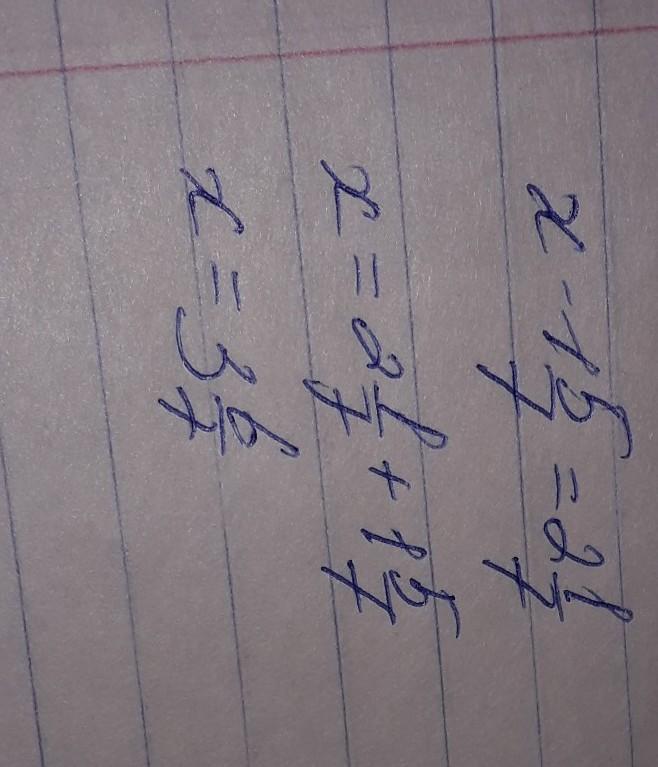 x - 1 5/7 = 2 1/7
x = 2 1/7 + 1 5/7
x = 3 6/7